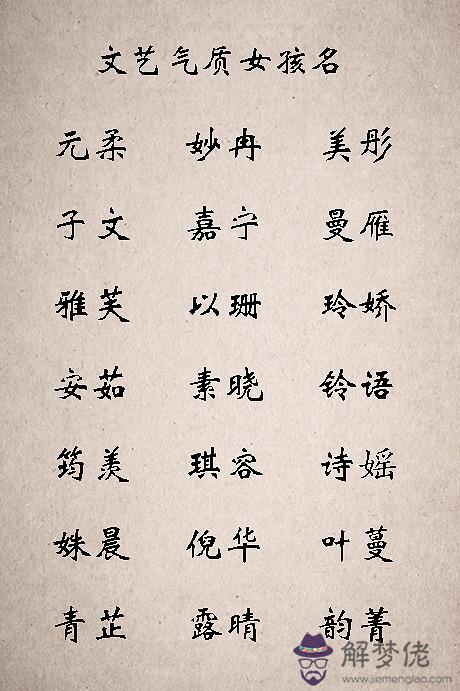 文艺气质女孩名
元柔 妙冉 美彤
子文 嘉宁 曼雁
雅芙 以珊 玲娇
安茹 素晓 铃语
筠羡 琪容 诗婸
姝晨 倪华 叶蔓
青芷 露晴 韵菁
解梦佬
www.jiemenglao.com